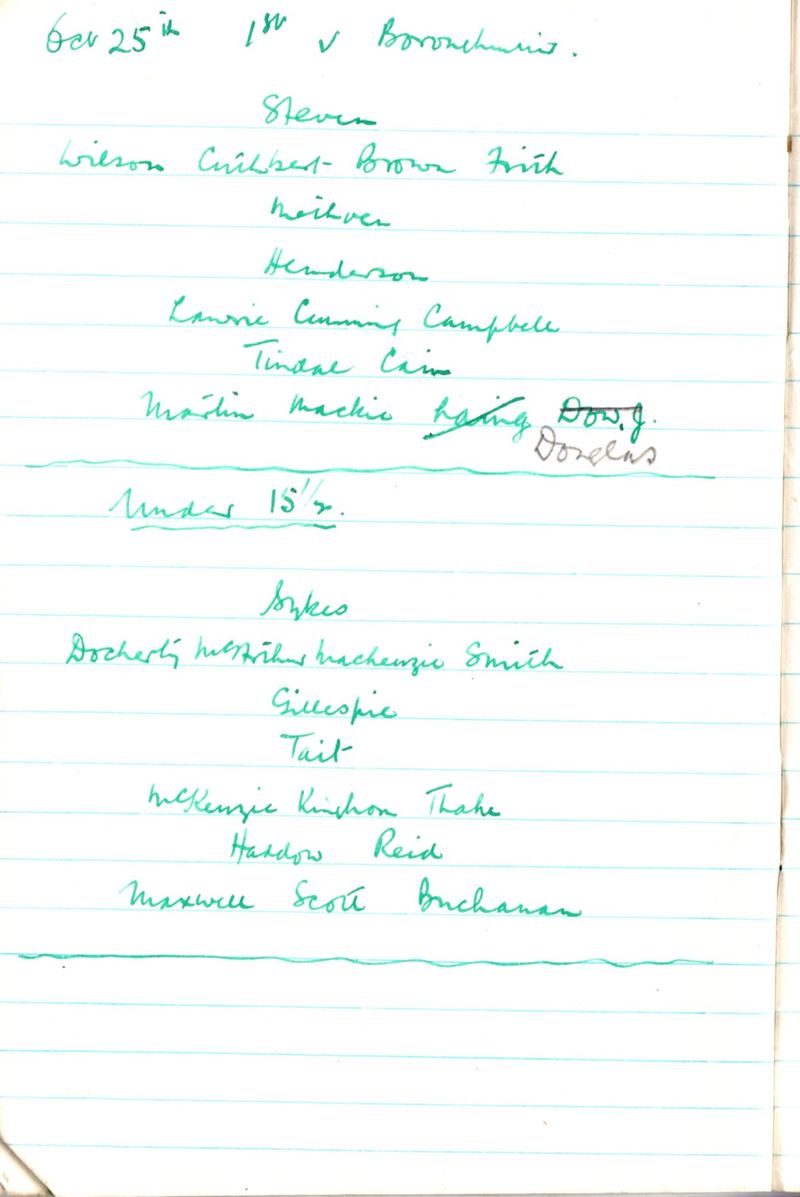 Oct 25th 1st v Boroughmuir.
Steven
Wilson Cuthbert Brown Frith
Methven
Henderson
Lawrie Cumming Campbell
Tindal Cain
Martin Mackie Laing Dow. J.
Douglas
Under 15½.
Sykes
Docherty McArthur Mackenzie Smith
Gillespie
Tait
McKenzie Kinghorn Thake
Haddow Reid
Maxwell Scott Buchanan